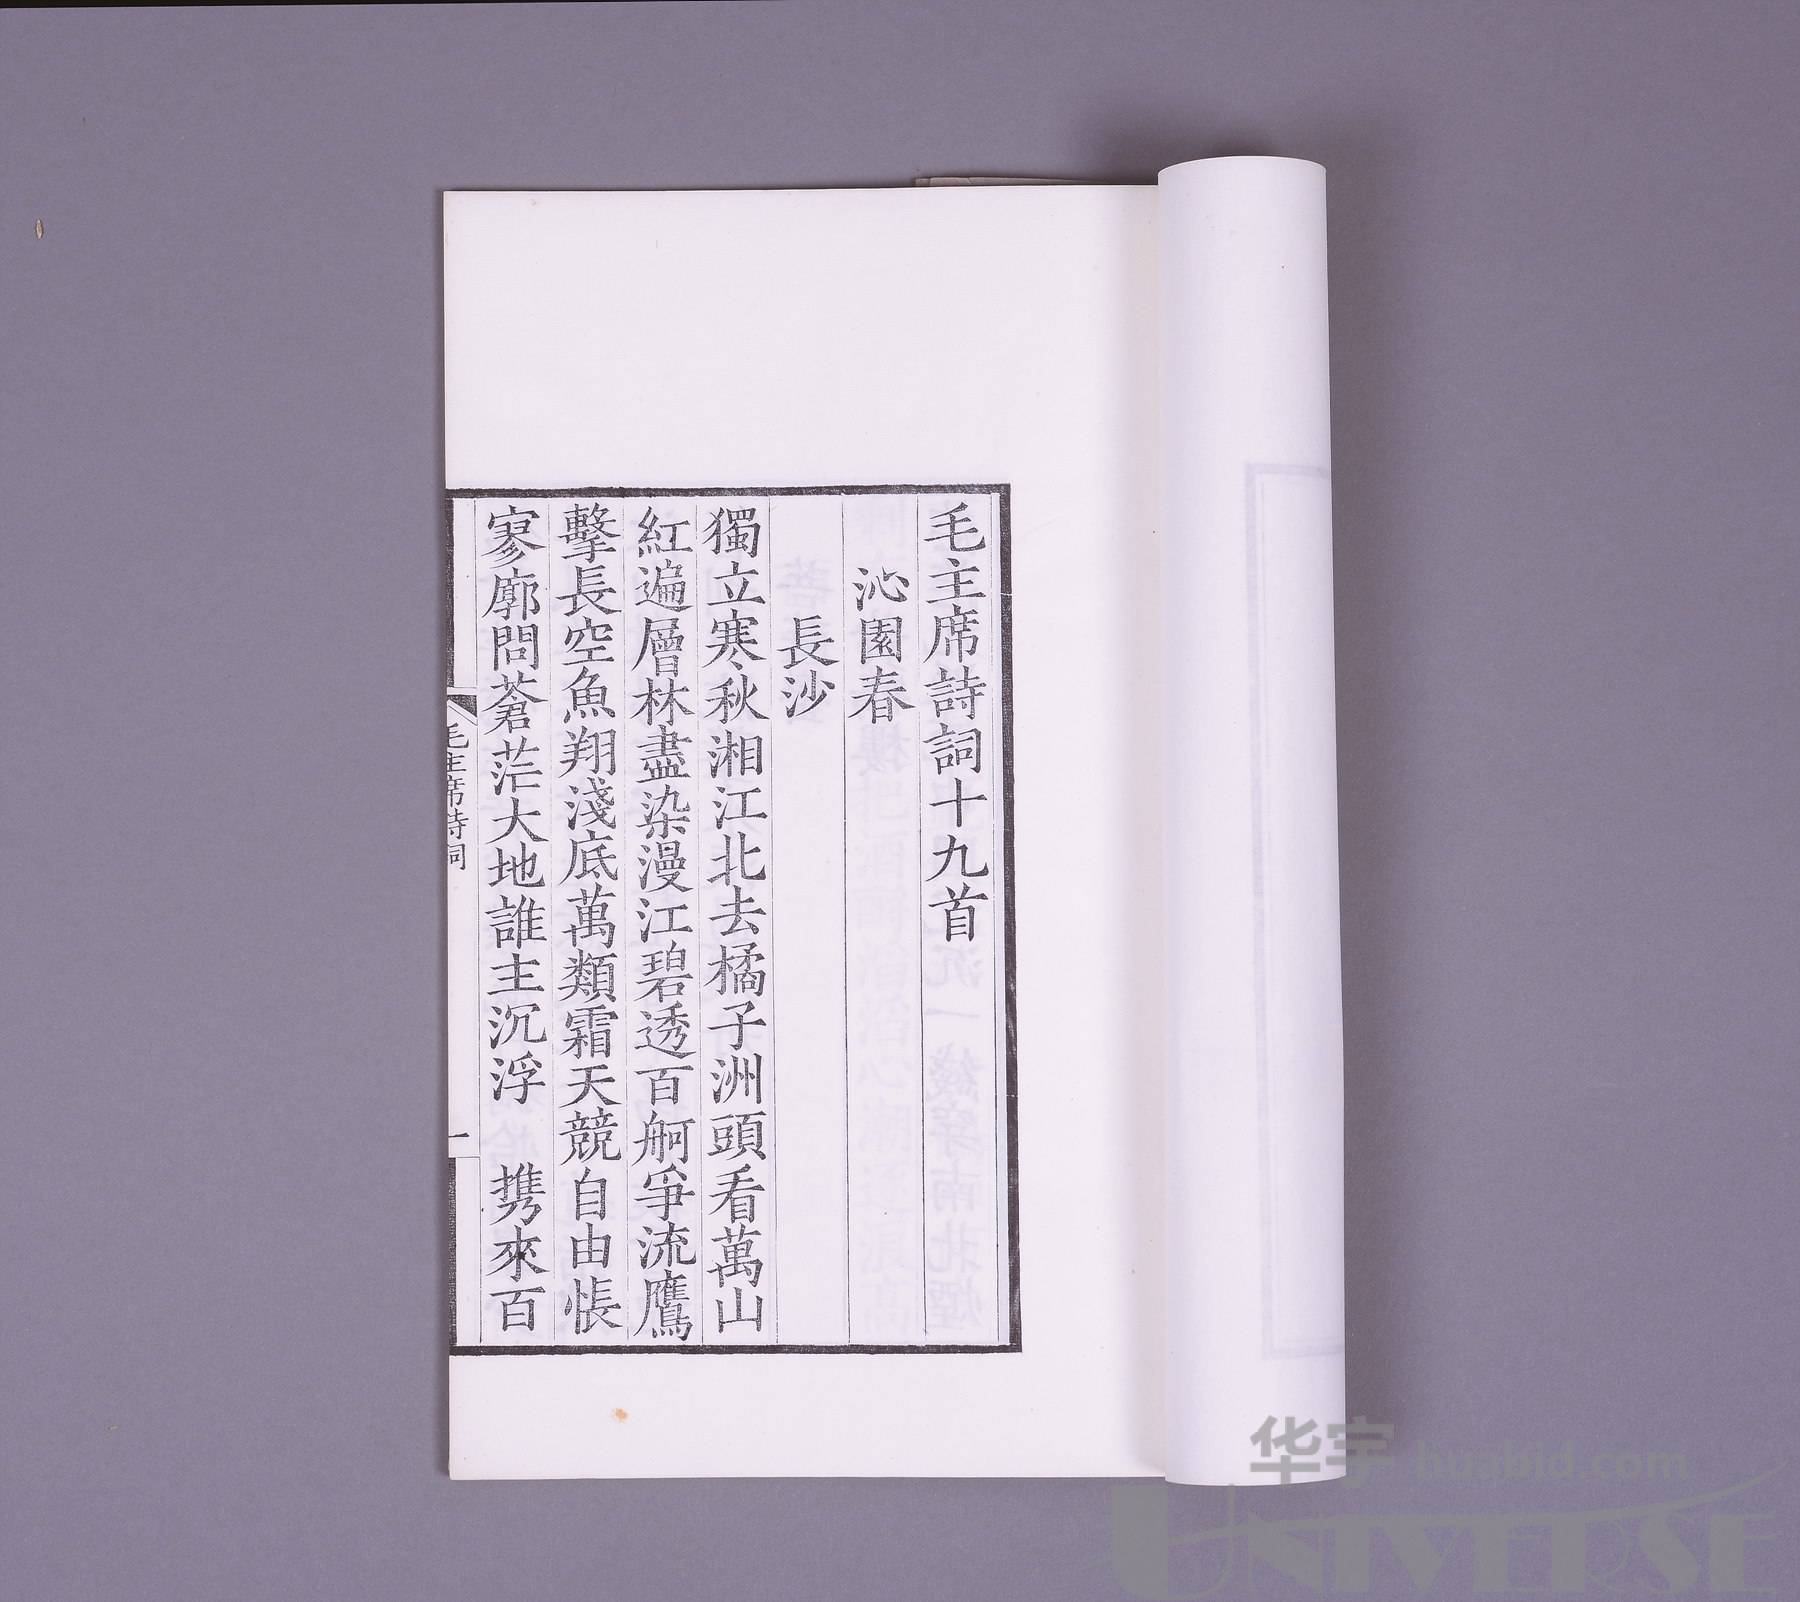 毛主席詩詞十九首
沁園春
長沙
獨立寒秋湘江北去橘子洲頭看萬山
紅遍層林盡染漫江碧透百舸爭流鷹
擊長空魚翔淺底萬類霜天競自由悵
寥廓問蒼茫大地誰主沉浮　携來百
毛主席詩詞
一
华宇 huabid.com
UNIVERSE